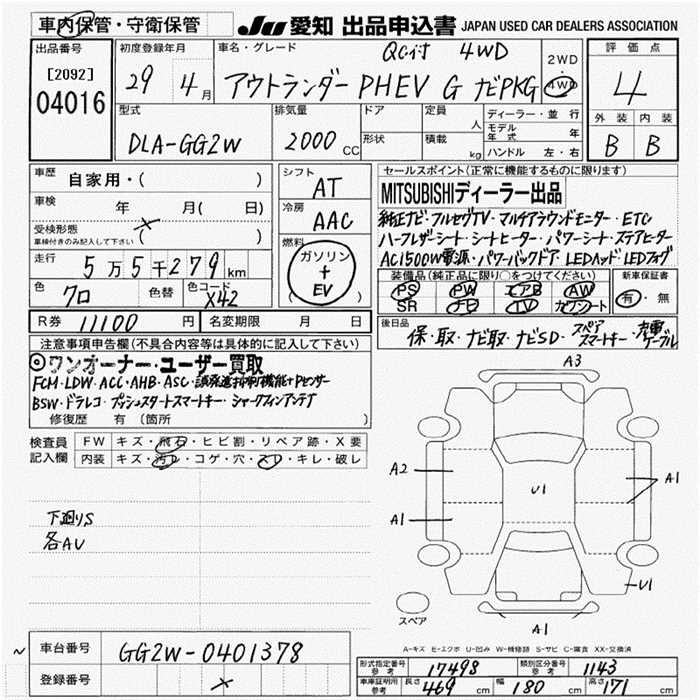 車内保管・守衛保管
JU 愛知 出品申込書 JAPAN USED CAR DEALERS ASSOCIATION
出品番号
[2092]
04016
初度登録年月
29 4月
車名・グレード
QC付 4WD
アウトランダーPHEV G ナビPKG
2WD
4WD
評価点
4
外装 内装
B B
型式
DLA-GG2W
排気量
2000 CC
ドア
形状
定員 人
積載 kg
ディーラー・並行
モデル年式 年
ハンドル 左・右
車歴 自家用・( )
車検 年 月( 日)
受検形態
車検付きのみ記入して下さい ( )
走行 5万5千279km
色 クロ 色替 色コード X42
シフト AT
冷房 AAC
燃料 ガソリン
+
EV
R券 11100円 名変期限 月 日
セールスポイント(正常に機能するものに限ります)
MITSUBISHIディーラー出品
純正ナビ・フルセグTV・マルチアラウンドモニター・ETC
ハーフレザーシート・シートヒーター・パワーシート・ステアヒーター
AC1500W電源・パワーバックドア・LEDヘッド・LEDフォグ
装備品(純正品に限り○をつけてください) 新車保証書
PS PW エアB AW 有・無
SR TV カワシート
後日品
保・取・ナビ取・ナビSD・スペアスマートキー・充電ケーブル
注意事項申告欄(不具合内容等は具体的に記入して下さい)
◎ワンオーナー・ユーザー買取
FCM・LDW・ACC・AHB・ASC・誤発進抑制機能+Pセンサー
BSW・ドラレコ・プッシュスタートスマートキー・シャークフィンアンテナ
修復歴 有 (箇所 )
検査員記入欄
FW キズ・飛石・ヒビ割・リペア跡・X要
内装 キズ・汚レ・コゲ・穴・スレ・キレ・破レ
下廻りS
各AU
A3
A2
U1
A1
A1
U1
A1
スペア
A-キズ E-エクボ U-凹み W-補修跡 S-サビ C-腐食 XX-交換済
車台番号 GG2W-0401378
登録番号
形式指定番号 参考 17498 類別区分番号 参考 1143
車庫証明用 参考 長さ 469 cm 幅 180 cm 高さ 171 cm